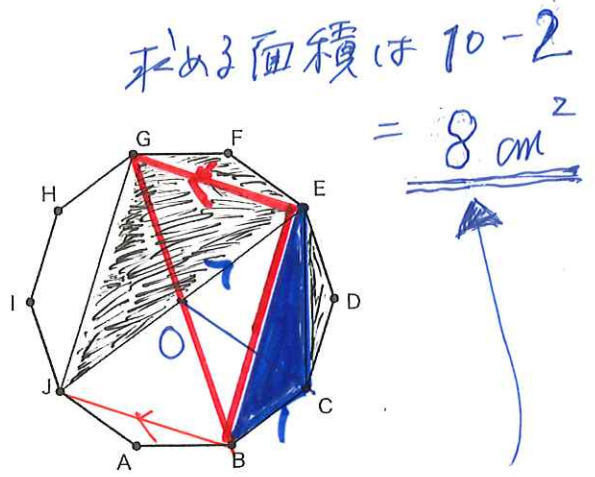 求める面積は 10-2
= 8 cm²
G
F
H
E
I
D
O
J
C
A
B